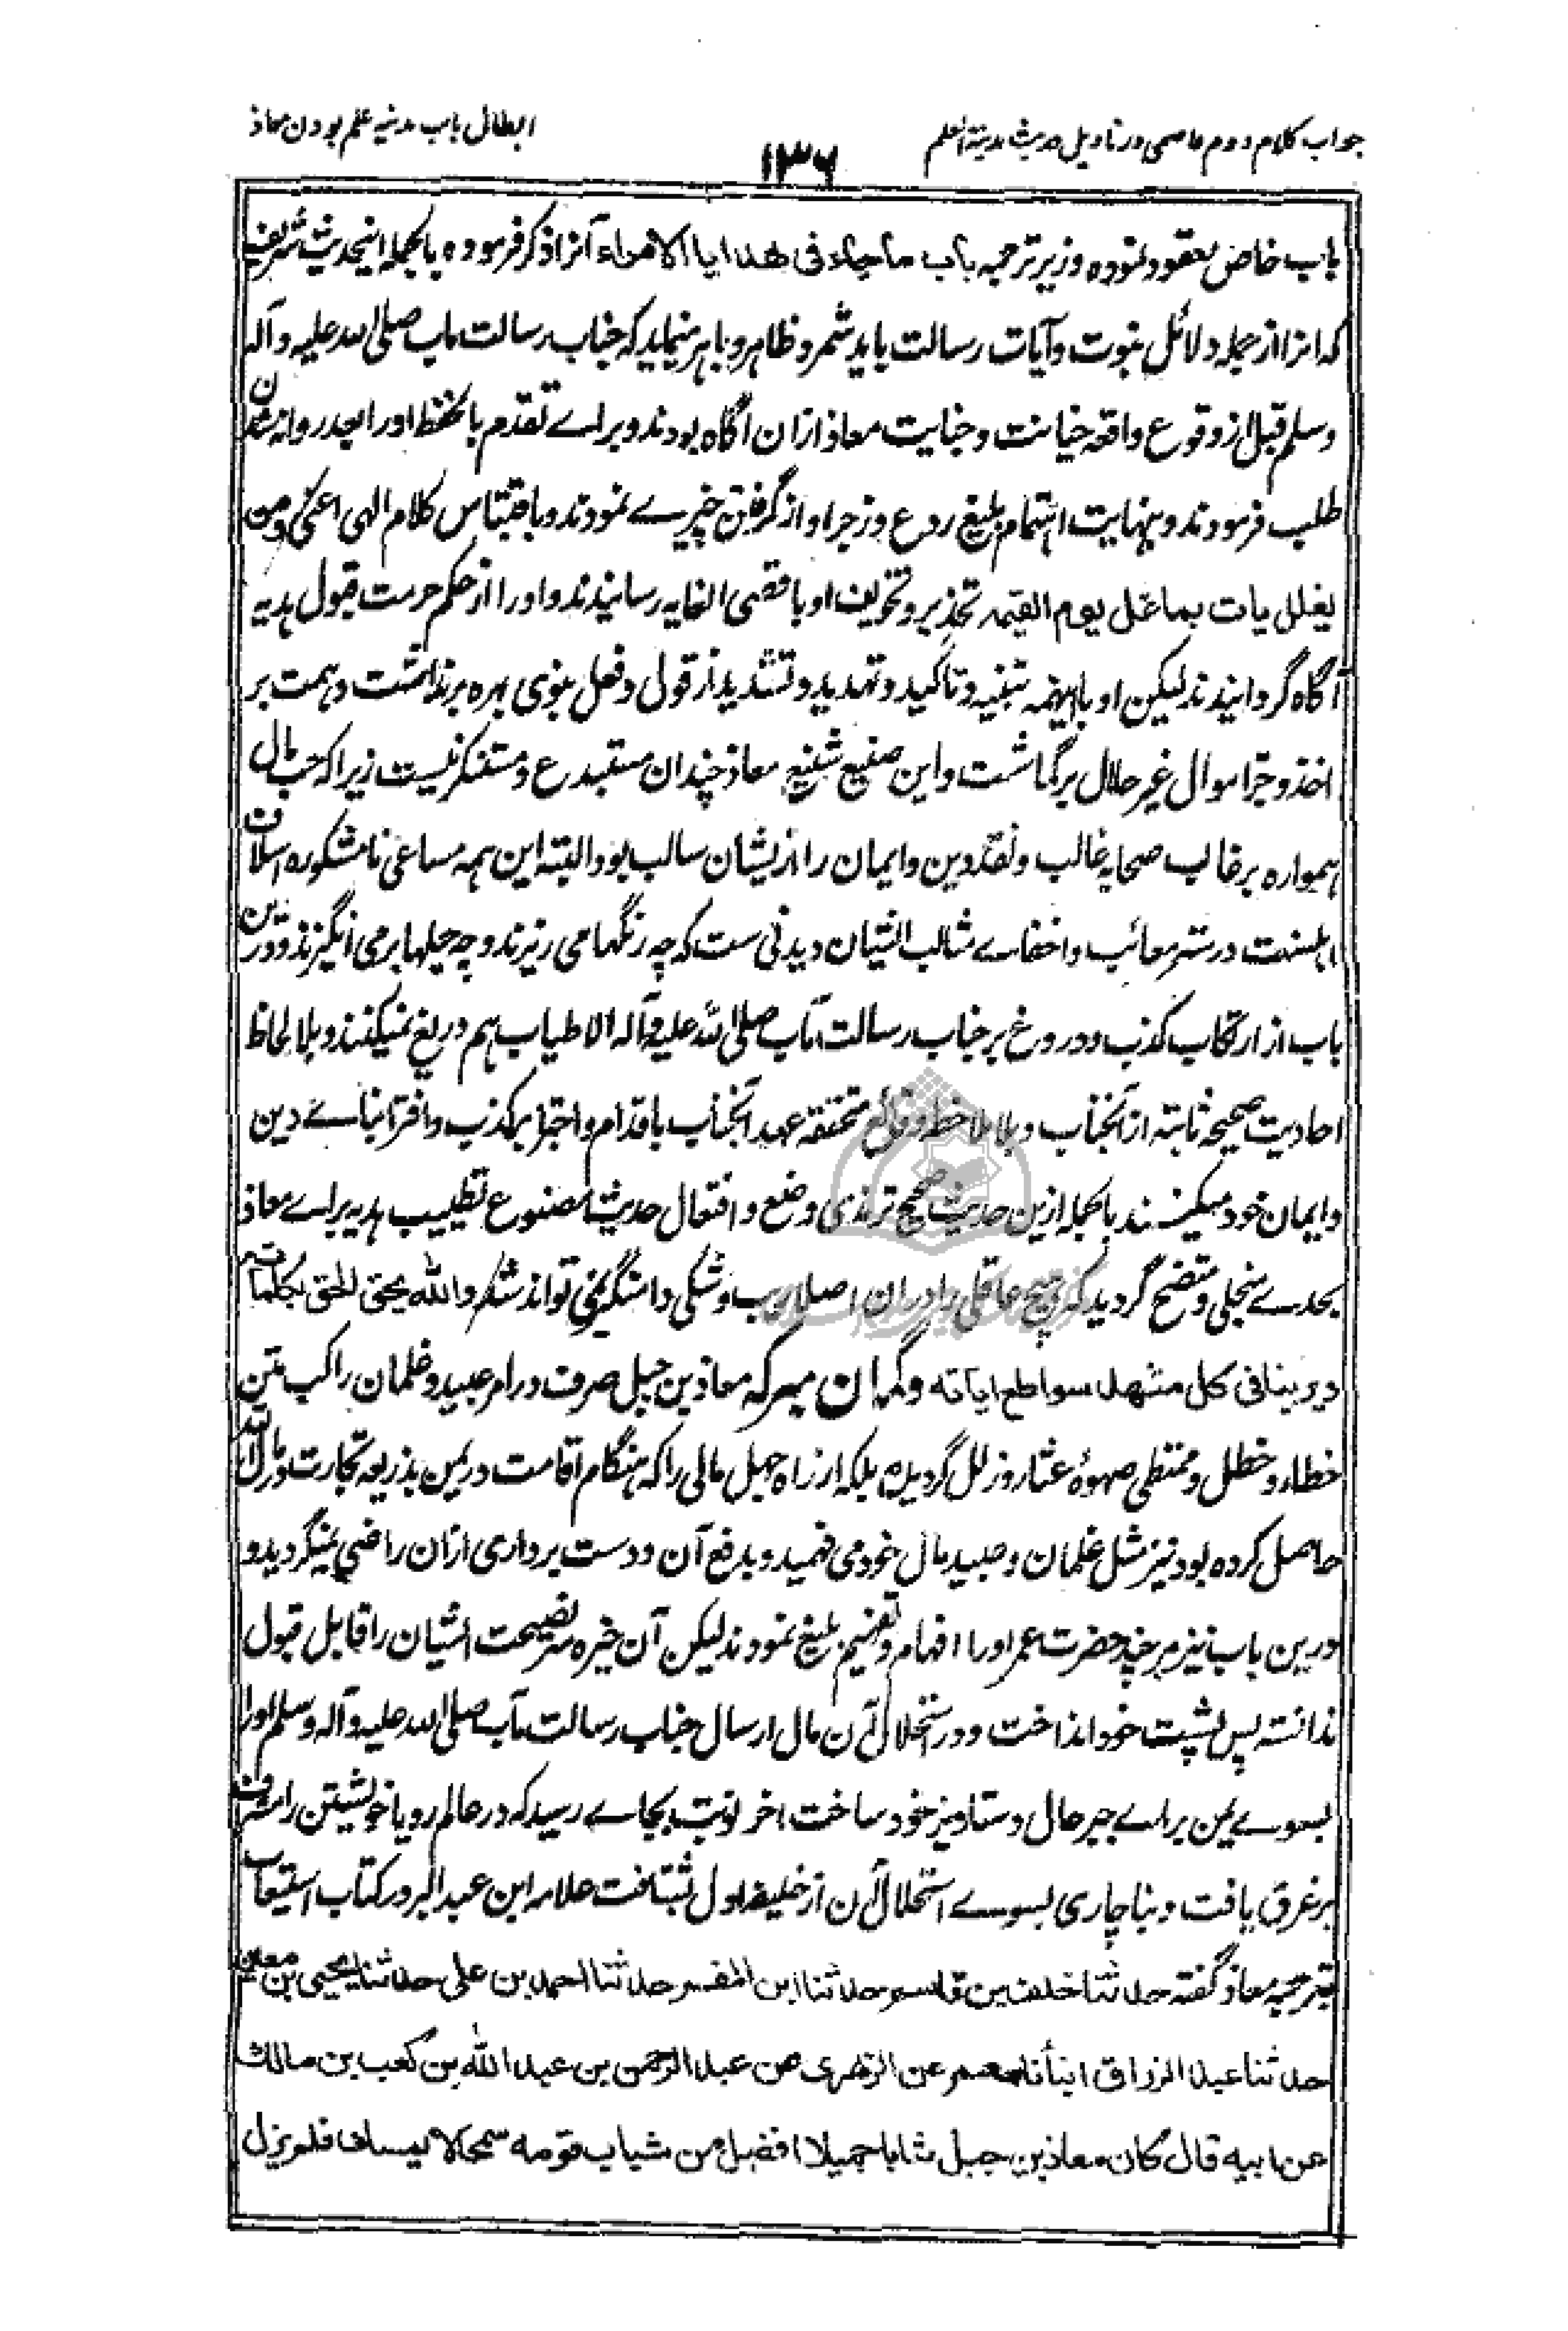 جواب کلام دوم عاصمی در تاویل حدیث مدینة العلم
۱۳۶
ابطال باب مدینه علم بودن معاذ
باب خاص معقود نموده و زیر ترجمه باب ما جاء فی هدایا الامراء آنرا ذکر فرموده بالجمله اینحدیث شریف
که انرا از جمله دلائل نبوت و آیات رسالت باید شمرد ظاهر و باهر مینماید که جناب رسالت مآب صلی الله علیه و آله
وسلم قبل از وقوع واقعه خیانت و جنایت معاذ ازان آگاه بودند و برای تقدم بالحفظ اورا بعد روانه شدن
طلب فرمودند و بنهایت اهتمام بلیغ ردع و زجر او از گرفتن چیزے نمودند و باقتباس کلام الهی اعنی و من
یغلل یات بما غل یوم القیمه تحذیر و تخویف او باقصی الغایه رسانیدند و اورا از حکم حرمت قبول هدیه
آگاه گردانیدند لیکن او بااینهمه تنبیه و تاکید و تهدید و تشدید از قول و فعل نبوی بهره برنداشت و همت بر
اخذ و جر اموال غیر حلال برگماشت و این صنیع شنیع معاذ چندان مستبدع و مستنکر نیست زیرا که حب مال
همواره بر غالب صحابه غالب و نقد دین و ایمان را ازیشان سالب بود البته این همه مساعی نامشکوره اسلاف
اهلسنت در ستر معائب و اخفاے مثالب ایشان دیدنی ست که چه رنگها می ریزند و چه حیلها بر می انگیزند و درین
باب از ارتکاب کذب و دروغ بر جناب رسالت مآب صلی الله علیه و آله الاطیاب هم دریغ نمیکنند و بلا لحاظ
احادیث صحیحه ثابته از آنجناب و بلا ملاحظه وقائع متحققه عهد آنجناب باقدام و اجترا بر کذب و افترا بناے دین
و ایمان خود میکنند بالجمله ازین حدیث صحیح ترمذی وضع و افتعال حدیث مصنوع تطییب هدیه براے معاذ
بحدے منجلی و متضح گردید که هیچ عاقلی را دران اصلا ریب و شکی دامنگیر نمی تواند شد و الله یحق الحق بکلماته
و یرینا فی کل مشهد سواطع ایاته و گمان مبر که معاذ بن جبل صرف در امر عبید و غلمان راکب متن
خطاء و خطل و ممتطی صهوۀ عثار و زلل گردیده بلکه از راه جهل مالی را که هنگام اقامت در یمن بذریعه تجارت در مال الله
حاصل کرده بود نیز مثل غلمان و عبید مال خود می فهمید و بدفع آن و دست برداری ازان راضی نمیگردید و
درین باب نیز هر چند حضرت عمر اورا افهام و تفهیم بلیغ نمودند لیکن آن خیره سر نصیحت ایشان را قابل قبول
ندانسته پس پشت خود انداخت و در استحلال آن مال ارسال جناب رسالت مآب صلی الله علیه و آله وسلم اورا
بسوے یمن براے جبر حال دستاویز خود ساخت اخر نوبت بجاے رسید که در عالم رویا خویشتن را مشرف
بر غرق یافت و بناچاری بسوے استحلال آن از خلیفه اول شتافت علامه ابن عبد البر در کتاب استیعاب
بترجمه معاذ گفته حدثنا خلف بن قاسم حدثنا ابن المفسر حدثنا احمد بن علی حدثنا یحیی بن معین
حدثنا عبد الرزاق انبأنا معمر عن الزهری عن عبد الرحمن بن عبد الله بن کعب بن مالک
عن ابیه قال کان معاذ بن جبل شابا جمیلا افضل من شباب قومه سمحا لا یمسک فلم یزل